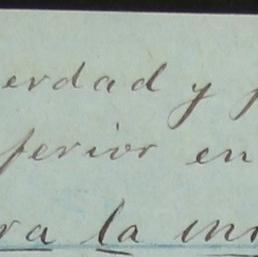 erdad y
ferior en
ra la in